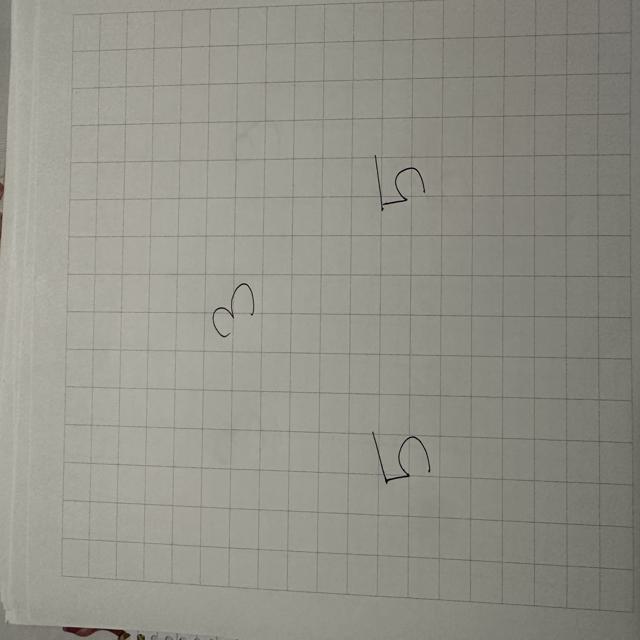 3
5 5